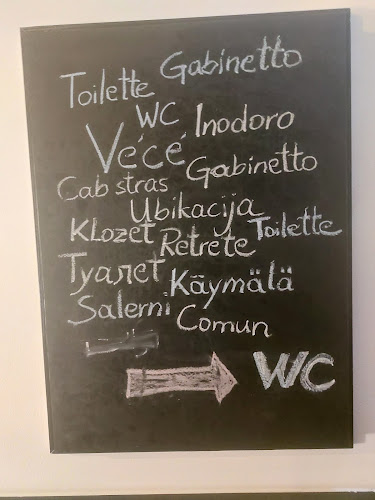 Toilette Gabinetto
WC Inodoro
Vécé Gabinetto
Cab stras
Ubikacija
Klozet Retrete Toilette
Туалет Käymälä
Salerni Comun
WC